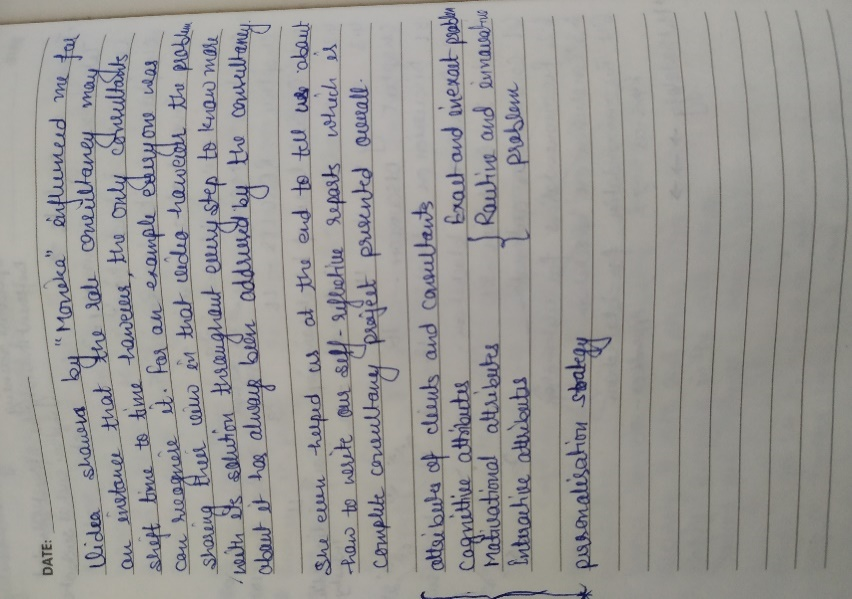 DATE:
Video shown by "Monieka" influenced me for
an instance that the role consultancy may
shift time to time however, the only consultants
can recognise it. For an example everyone was
sharing their view in that video however the problem
with its solution throughout every step to know more
about it has always been addressed by the consultancy.
She even helped us at the end to tell us about
how to write our self-reflective reports which is
complete consultancy project presented overall.
attributes of clients and consultants
Cognitive attributes Exact and inexact problem
Motivational attributes { Routine and innovative
Interactive attributes { problem
personalisation strategy